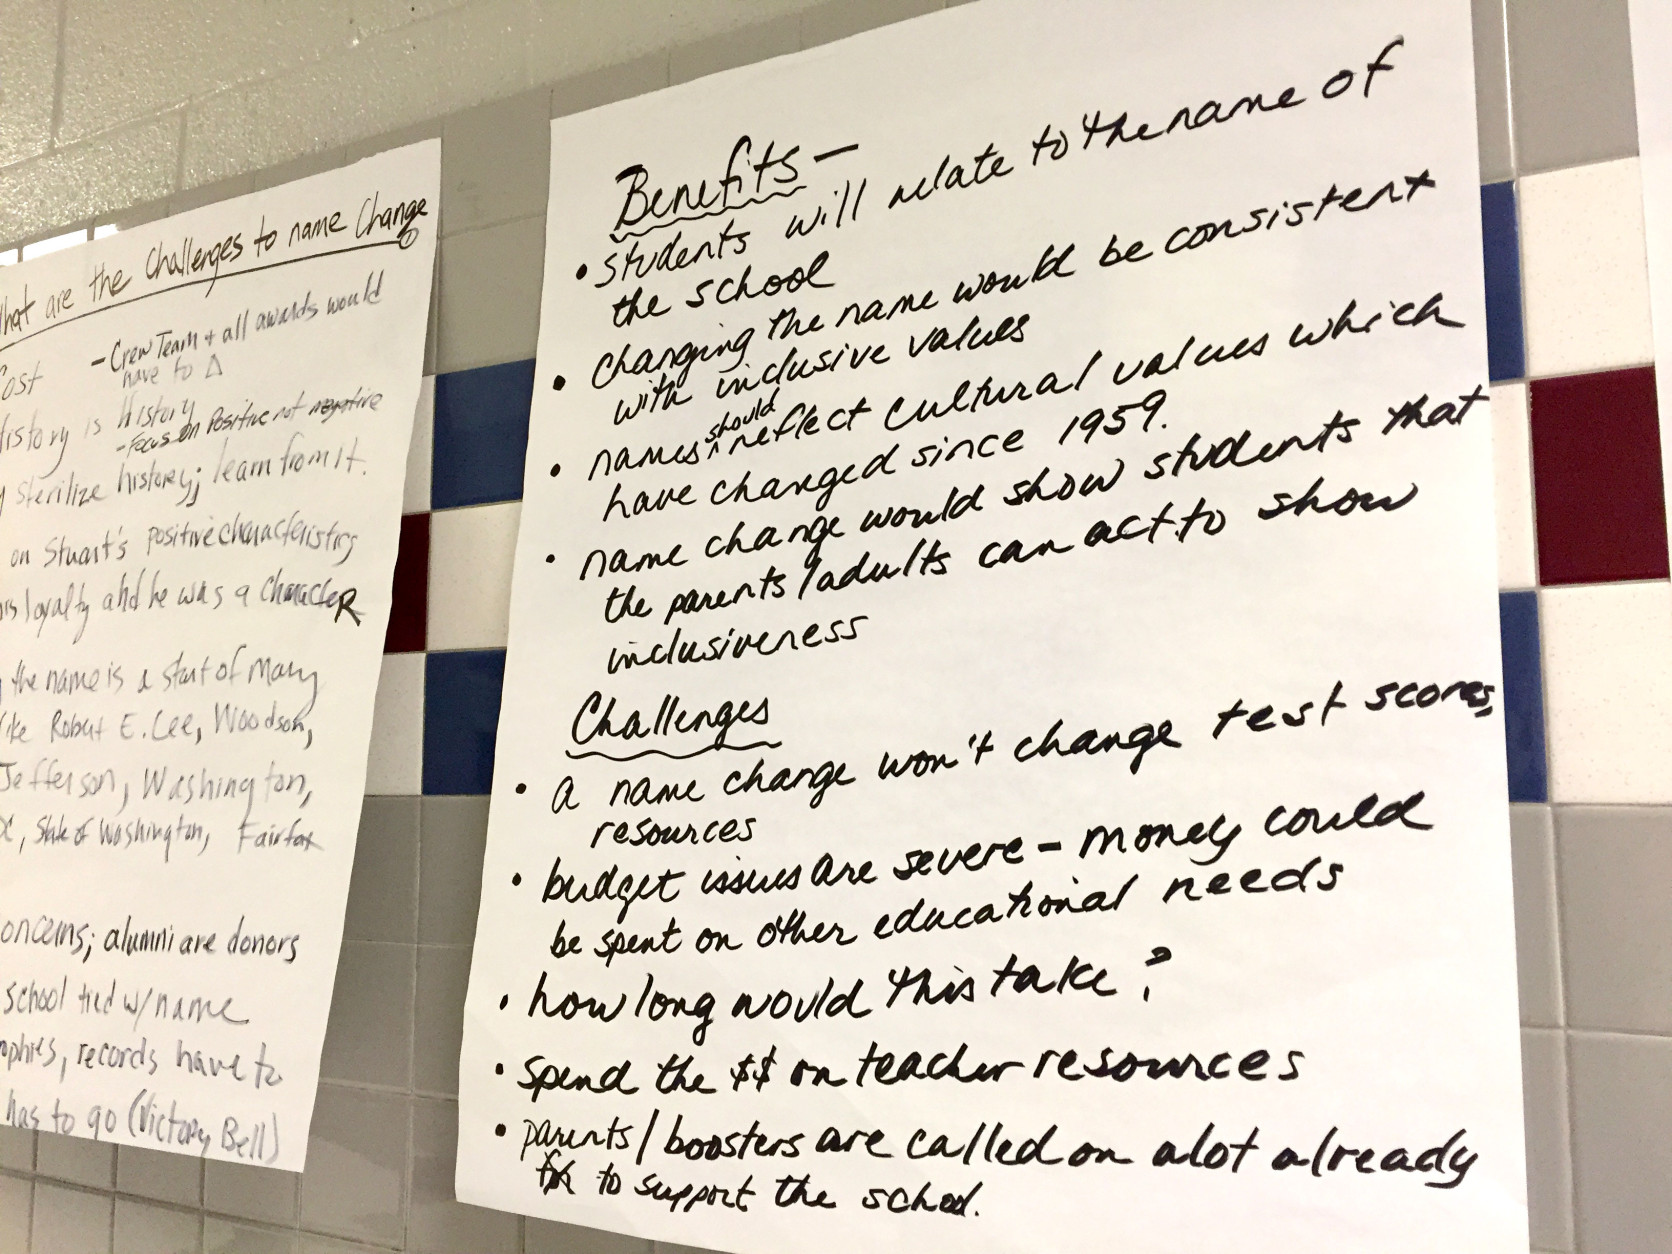 What are the Challenges to name Change
Cost
- Crew Team + all awards would
have to Δ
History is History
- Focus on Positive not negative
sterilize history; learn from it.
on Stuart's positive characteristics
loyalty and he was a characteR
the name is a start of many
like Robert E. Lee, Woodson,
Jefferson, Washington,
DC, State of Washington, Fairfax
concerns; alumni are donors
school tied w/ name
records have to
has to go (Victory Bell)
Benefits -
• students will relate to the name of
the school
• changing the name would be consistent
with inclusive values
• names should reflect cultural values which
have changed since 1959.
• name change would show students that
the parents/adults can act to show
inclusiveness
Challenges
• a name change won't change test scores,
resources
• budget issues are severe - money could
be spent on other educational needs
• how long would this take?
• spend the $$ on teacher resources
• parents/boosters are called on alot already
to support the school.